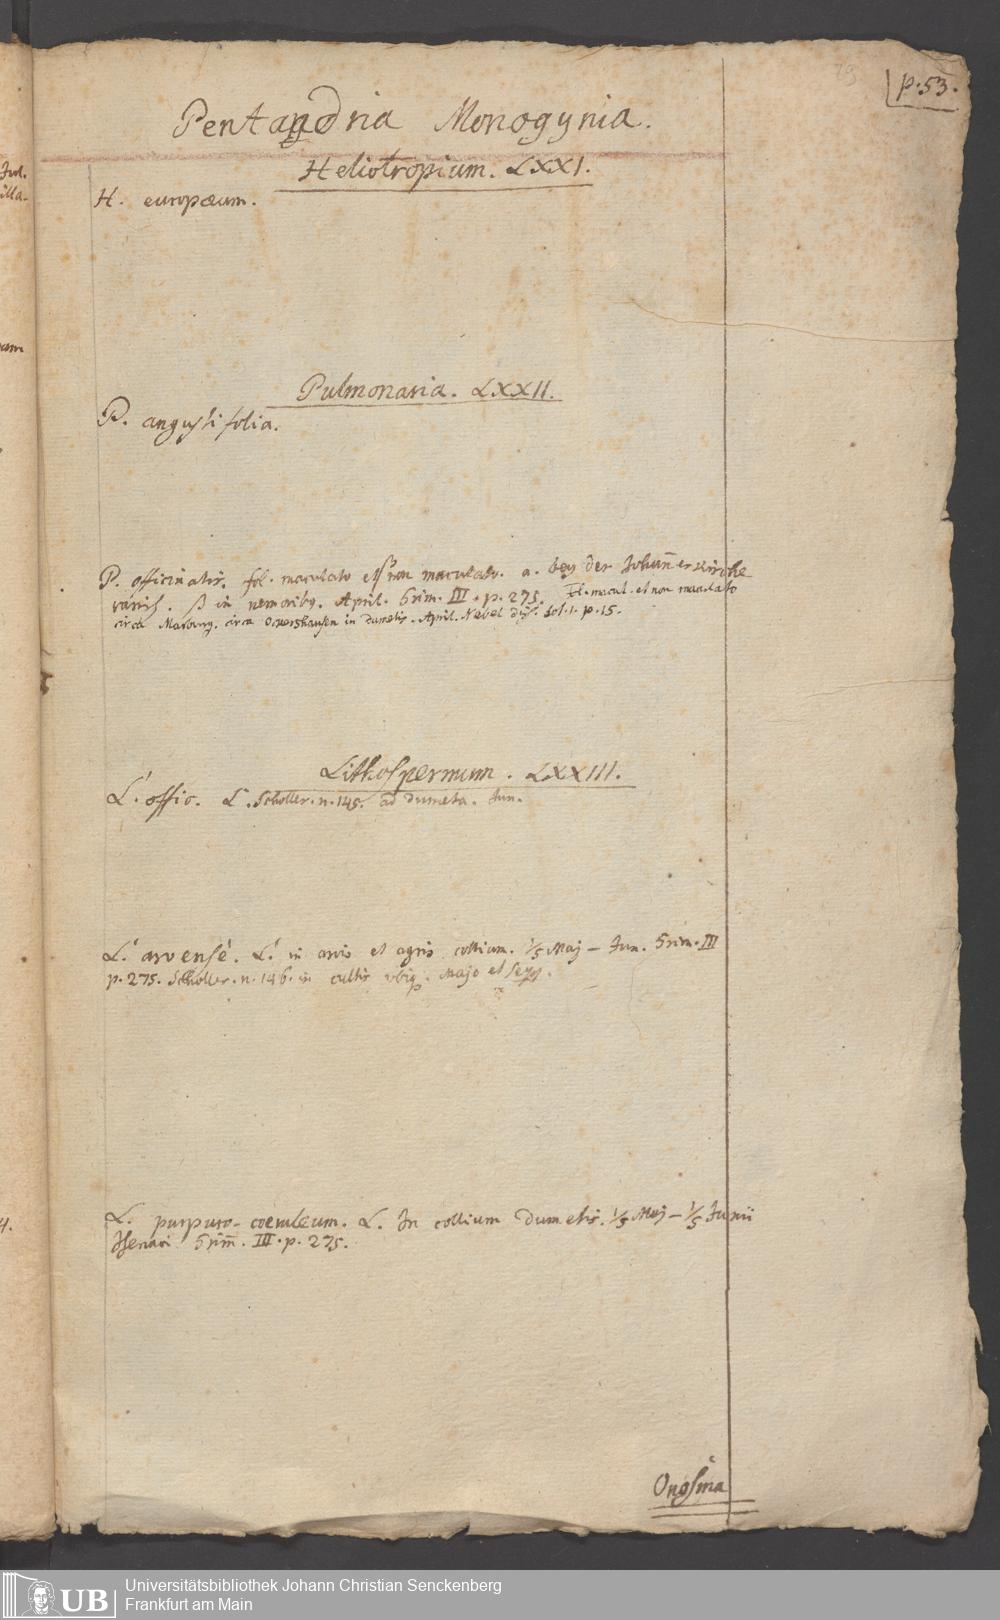 p. 53.
Pentandria Monogynia.
Heliotropium. LXXI.
H. europaeum.
Pulmonaria. LXXII.
P. angustifolia.
P. officinalis. fol. maculato et non maculato. a. bey der Johannerkirche
β in nemoribq. April. Grim. III. p. 275. Fl. macul. et non maculato
circa Marburg. circa Ockershausen in dumetis. April. Nebel diss. sol. 1. p. 15.
Lithospermum. LXXIII.
L. offic. L. Scholler. n. 145. ad dumeta. Jun.
L. arvense. L. in arvis et agris collium. 1/5 Maj – Jun. Grim. III
p. 275. Scholler. n. 146. in cultis ubiq. Majo et seqq.
L. purpuro-coeruleum. L. In collium dumetis. 1/5 Maj – 1/5 Junii
Isenaci Grim̄. III. p. 275.
Onosma
Jul.
illa.
UB
Universitätsbibliothek Johann Christian Senckenberg
Frankfurt am Main